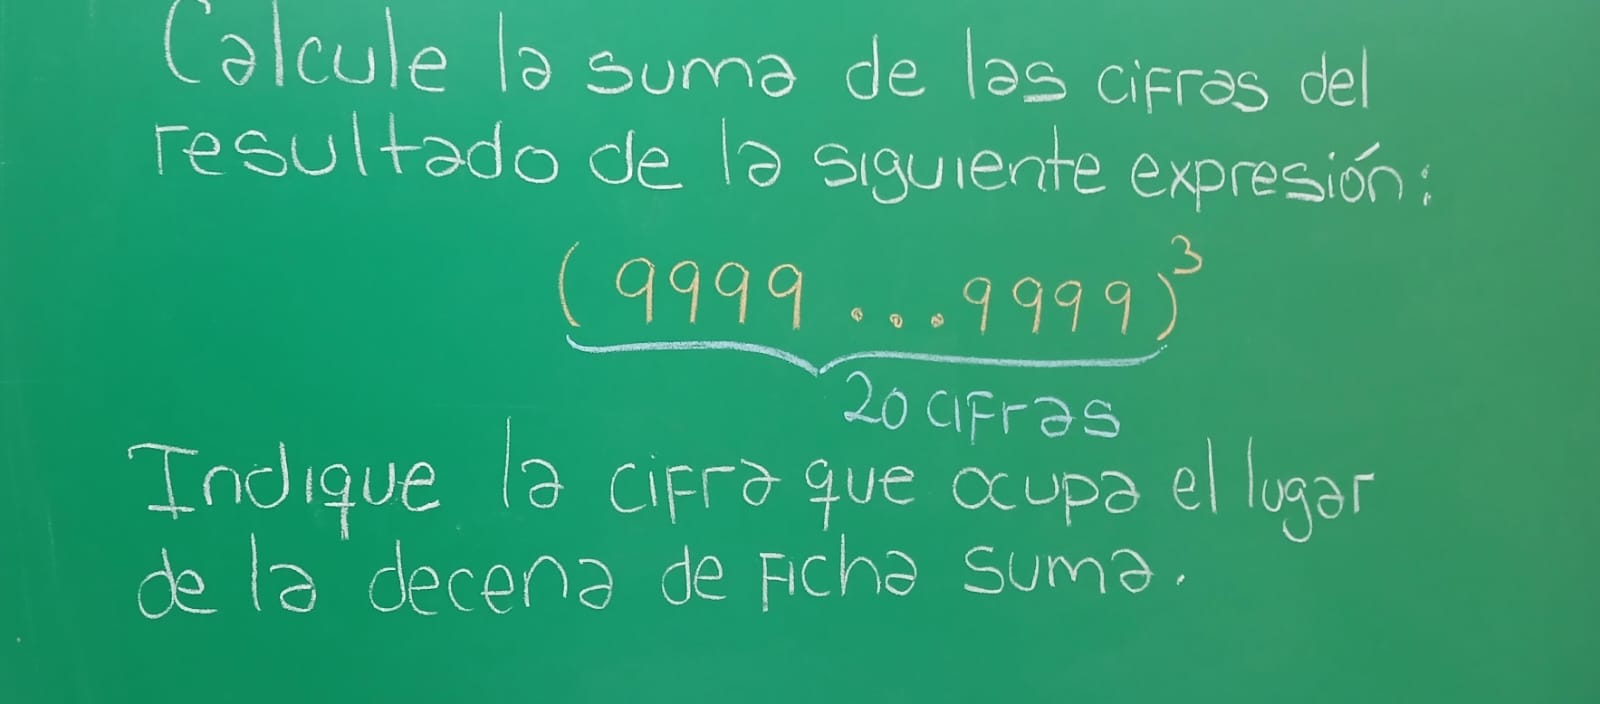 Calcule la suma de las cifras del
resultado de la siguiente expresión:
(9999...9999)³
20 cifras
Indique la cifra que ocupa el lugar
de la decena de Ficha suma.